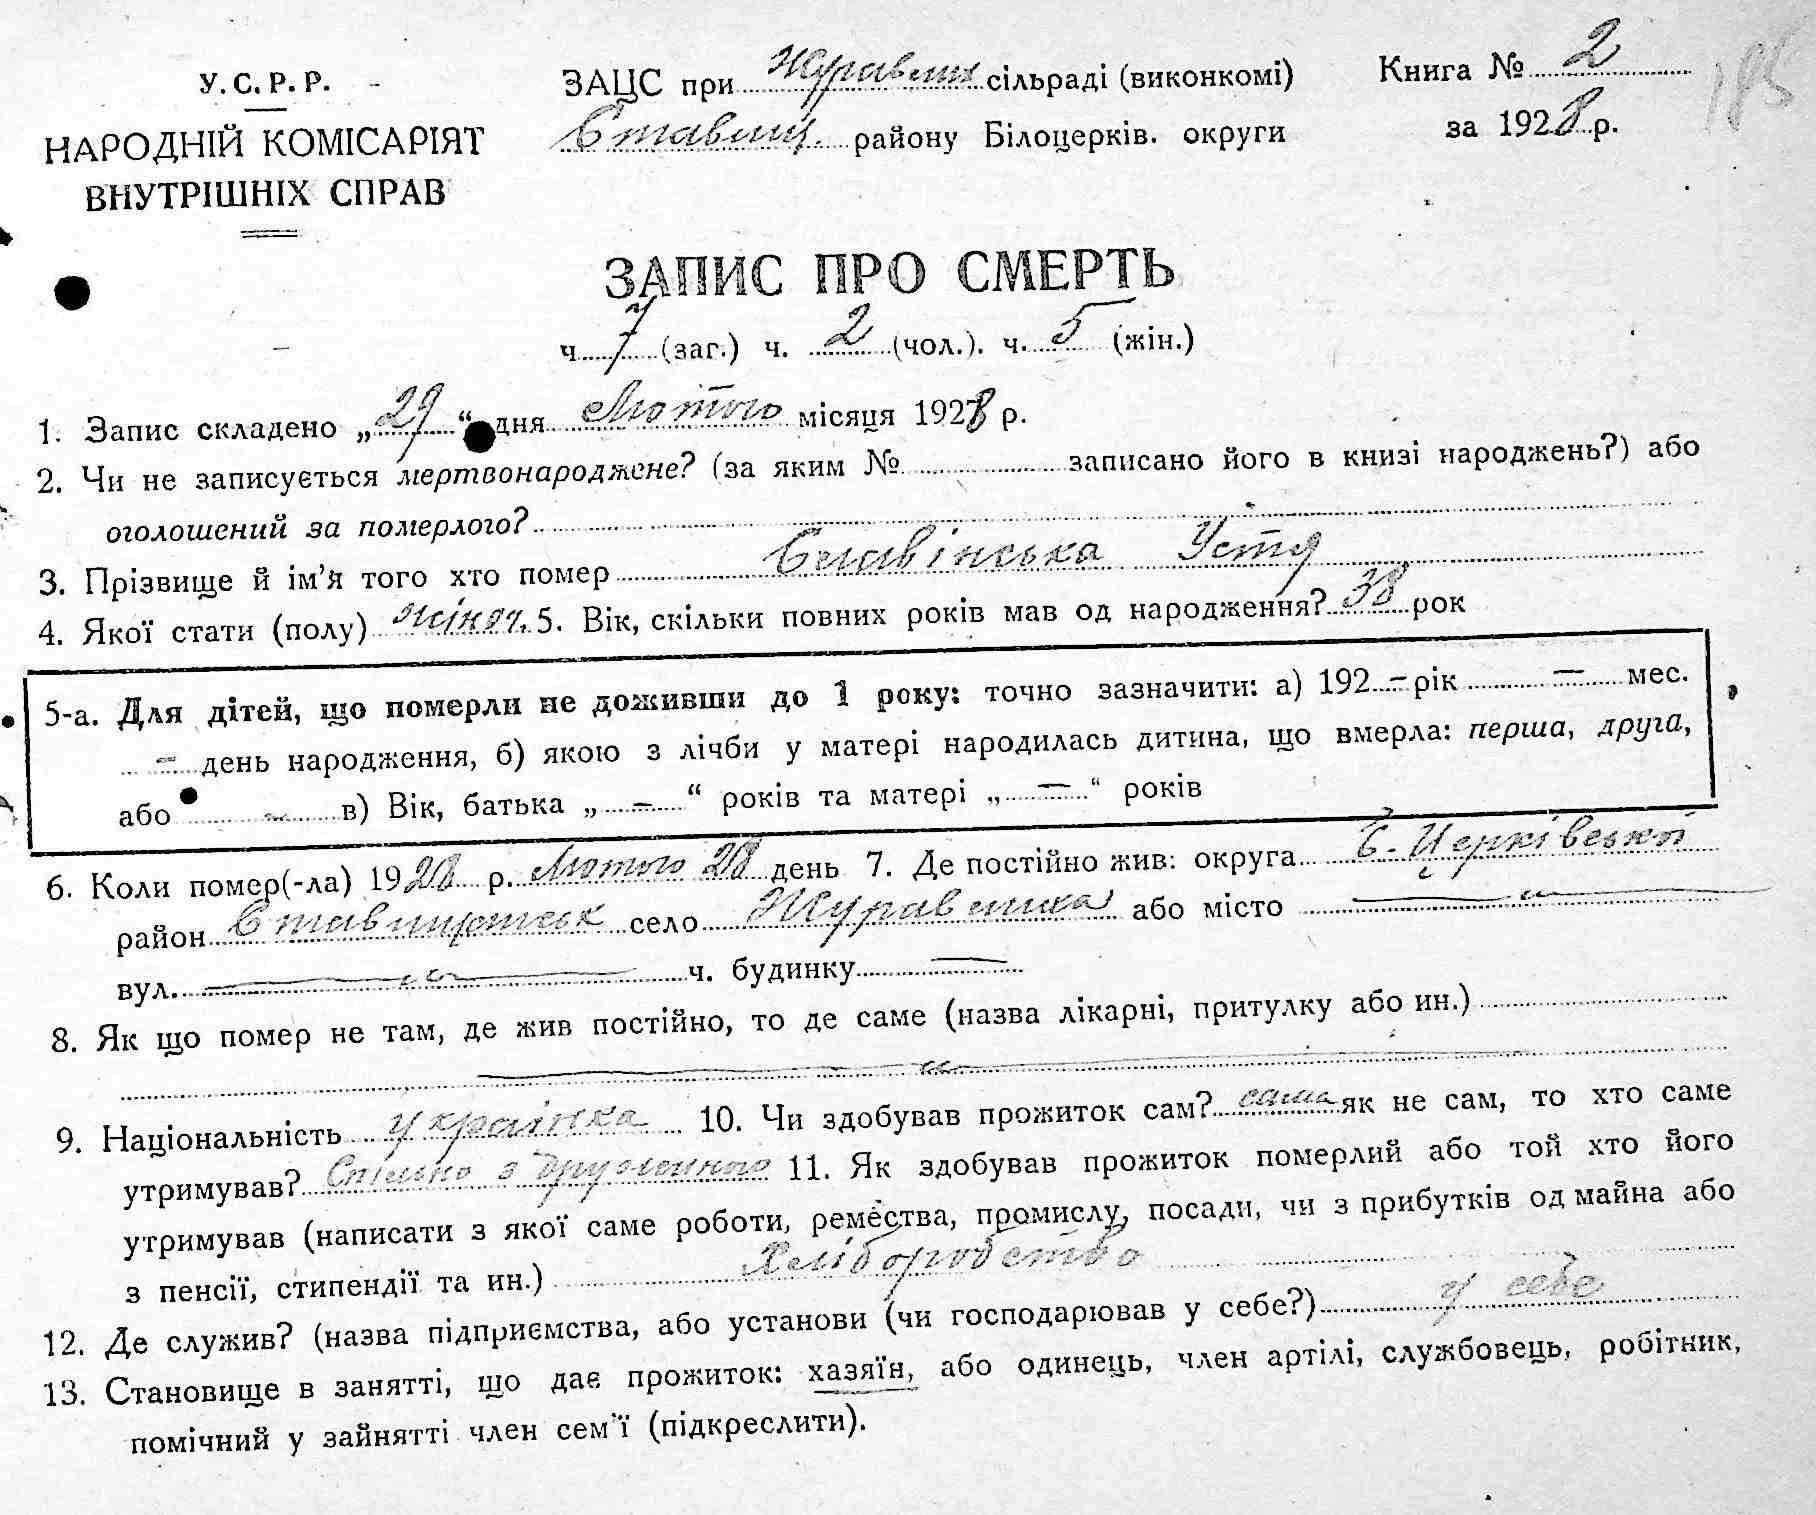 У.С.Р.Р.
НАРОДНІЙ КОМІСАРІЯТ
ВНУТРІШНІХ СПРАВ
ЗАЦС при Журавлих сільраді (виконкомі)
Ставищ. району Білоцерків. округи
Книга № 2
за 1928 р.
185
ЗАПИС ПРО СМЕРТЬ
ч. 7 (заг.) ч. 2 (чол.). ч. 5 (жін.)
1. Запис складено „29“ дня Лютого місяця 1928 р.
2. Чи не записується мертвонароджене? (за яким № записано його в книзі народжень?) або
оголошений за померлого?
3. Прізвище й ім’я того хто помер Славінська Устя
4. Якої стати (полу) жіноч. 5. Вік, скільки повних років мав од народження? 38 рок
5-а. Для дітей, що померли не доживши до 1 року: точно зазначити: а) 192 – рік — мес.
– день народження, б) якою з лічби у матері народилась дитина, що вмерла: перша, друга,
або ~ в) Вік, батька „ – “ років та матері „ — “ років
6. Коли помер(-ла) 1928 р. Лютого 28 день 7. Де постійно жив: округа Б. Церківської
район Ставищетськ село Журавлиха або місто —
вул. — ч. будинку —
8. Як що помер не там, де жив постійно, то де саме (назва лікарні, притулку або ин.)
—
9. Національність українка 10. Чи здобував прожиток сам? сама як не сам, то хто саме
утримував? Спільно з 11. Як здобував прожиток померлий або той хто його
утримував (написати з якої саме роботи, ремества, промислу, посади, чи з прибутків од майна або
з пенсії, стипендії та ин.) Хлібородство
12. Де служив? (назва підприємства, або установи (чи господарював у себе?) у себе
13. Становище в занятті, що дає прожиток: хазяїн, або одинець, член артілі, службовець, робітник,
помічний у зайнятті член сем’ї (підкреслити).